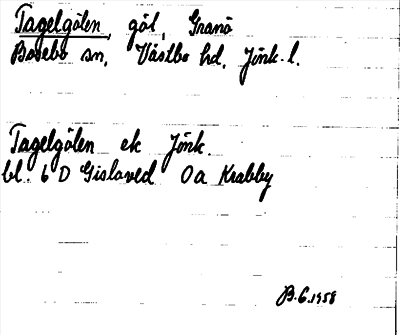 Tagelgölen, göl, Granö
Bosebo sn, Västbo hd, Jönk. l.
Tagelgölen ek Jönk.
bl. 6 D Gislaved 0a Krabby
B.G. 1958